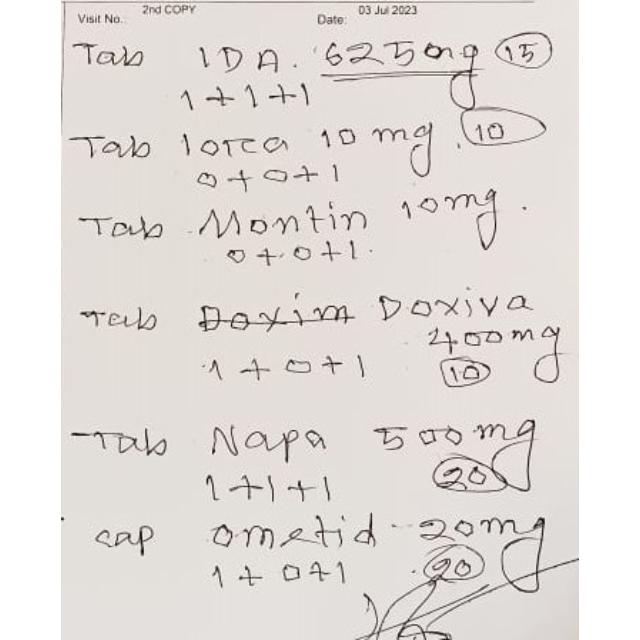 2nd COPY 03 Jul 2023
Visit No. Date:
Tab IDA. 625mg 15
1+1+1
Tab lorea 10 mg. 10
0+0+1
Tab Montin 10mg.
0+0+1.
Tab Doxim Doxiva
400mg
1+0+1 10
Tab Napa 500mg
1+1+1 20
cap ometid 20mg
1+0+1 20